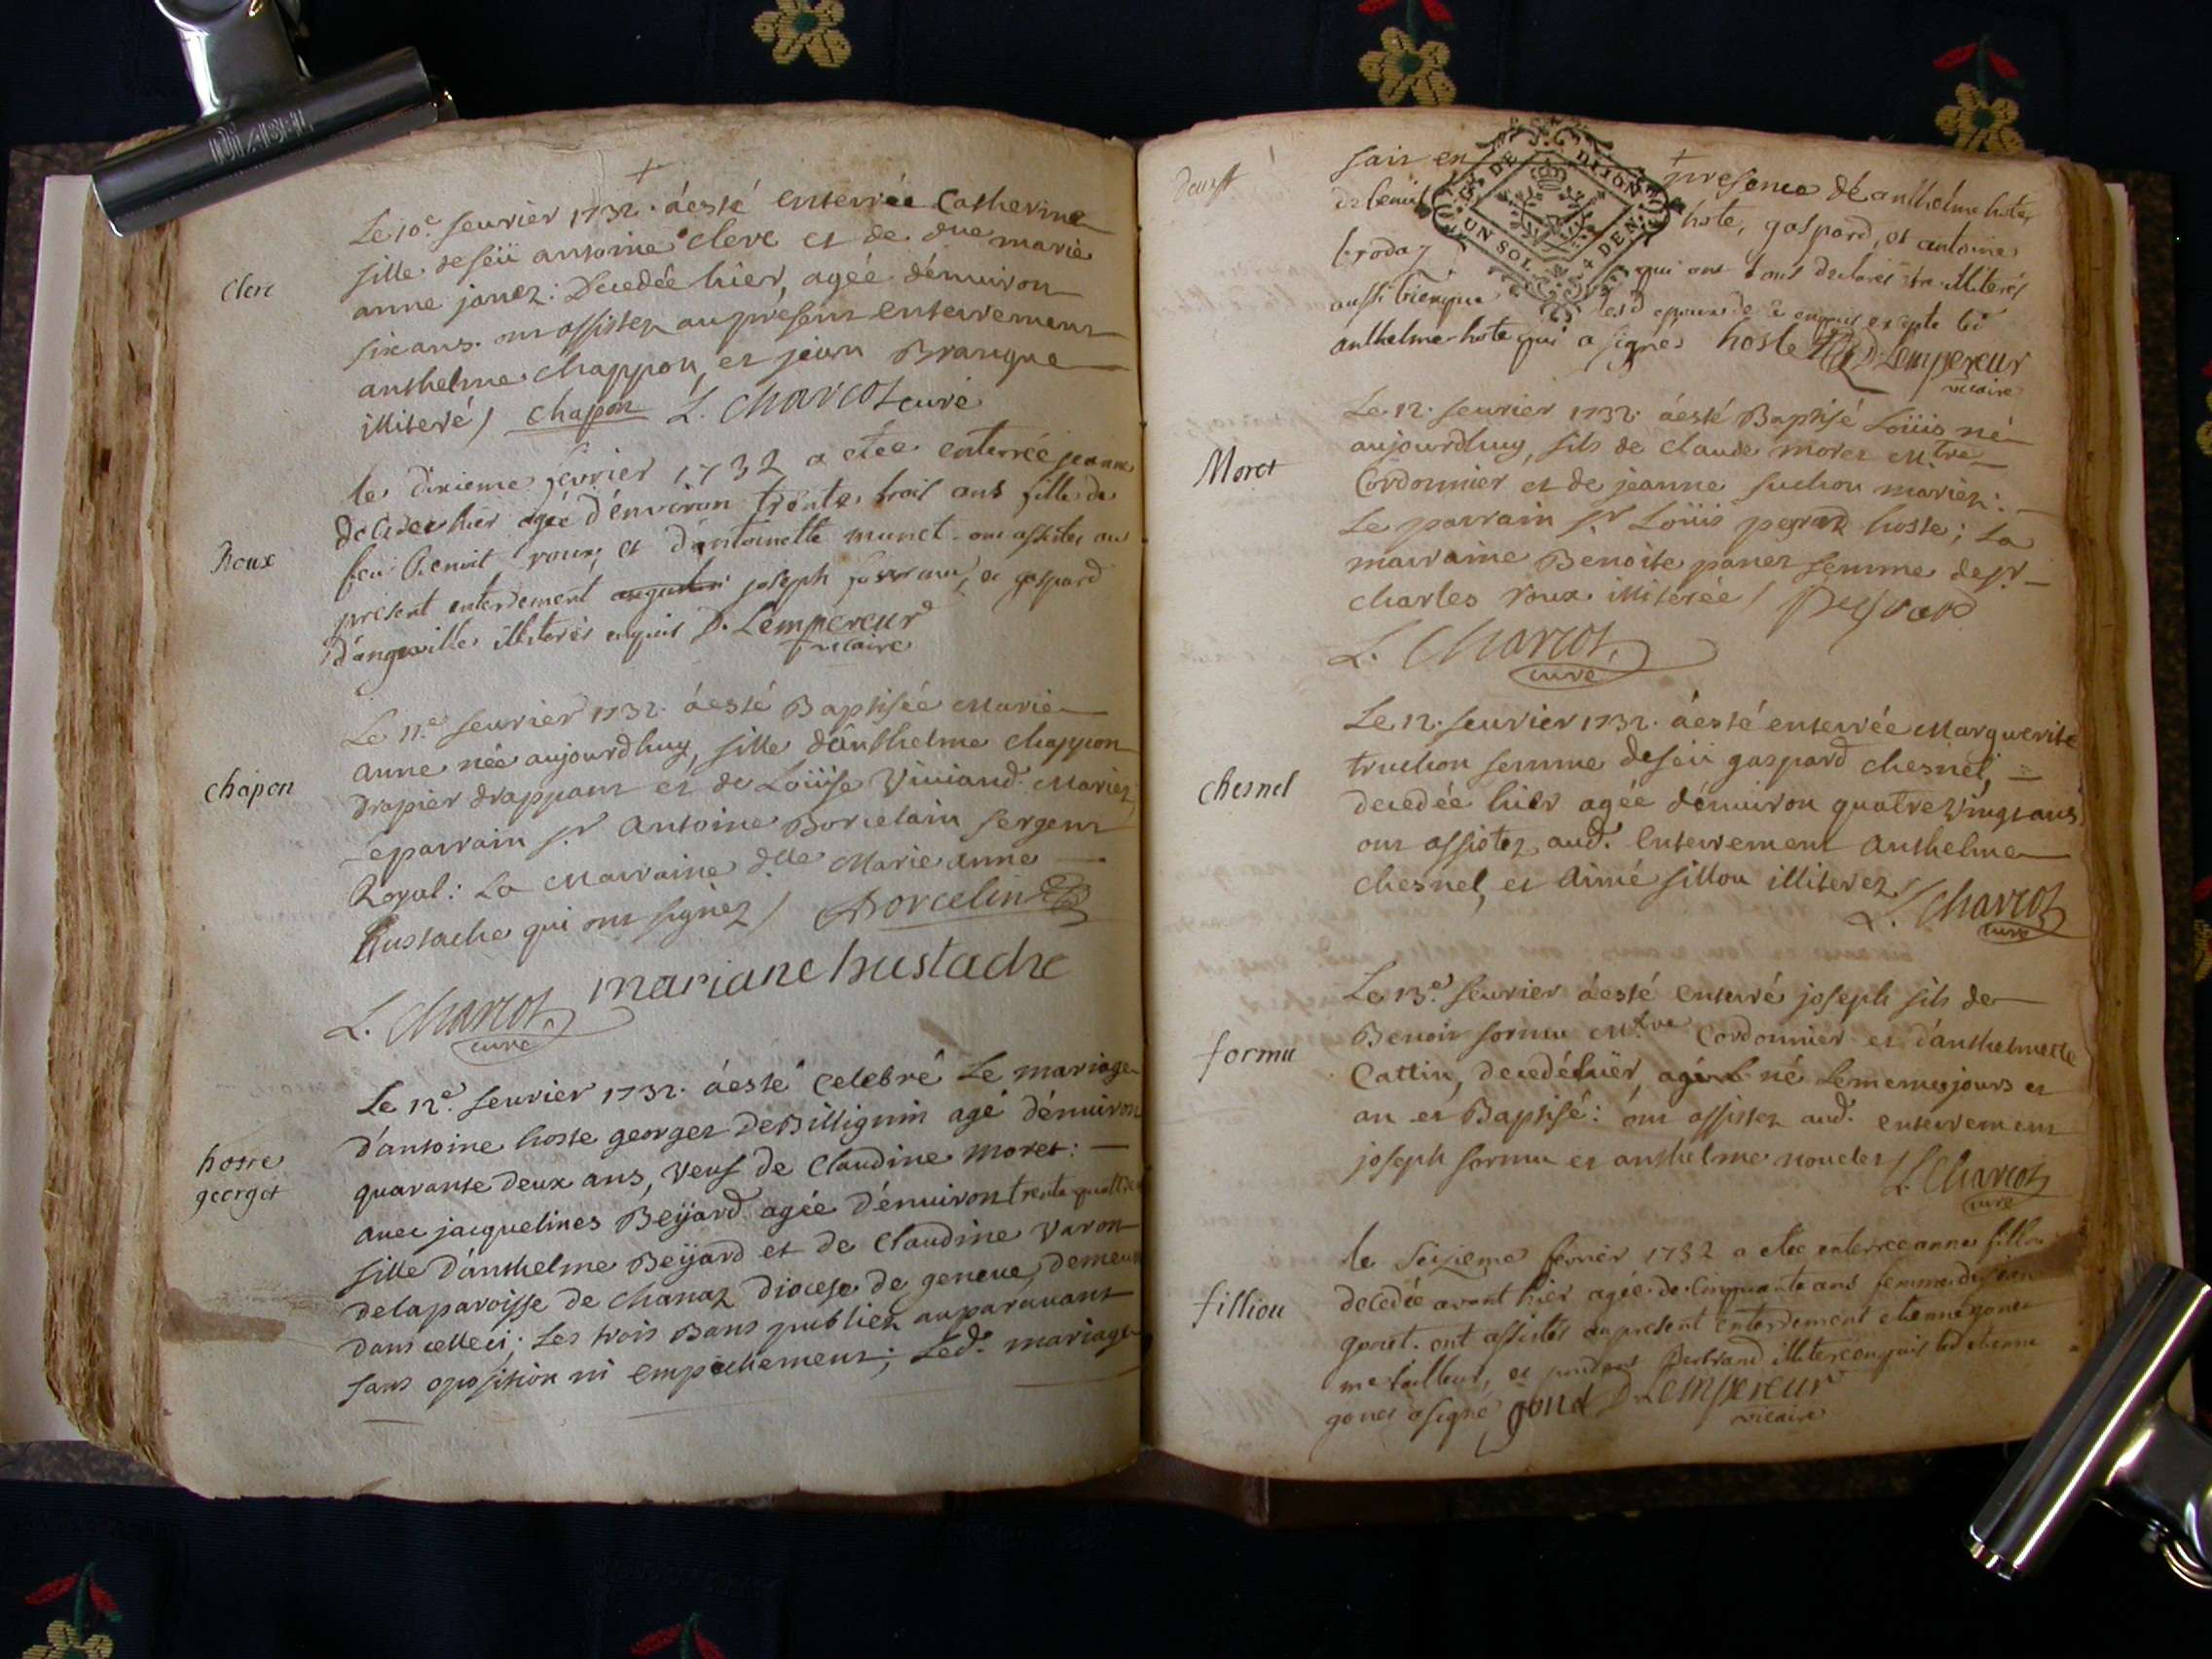 Clerc
Le 10.e feurier 1732. áesté enterrée Catherine
fille de feü antoine Clerc et de due marie
anne janez: Decedée hier, agée dénuiron
six ans. ont assistez au présent enterrement
anthelme Chappon, et jean Brangue
illiteré / chapon L. Charcot curé
Roux
le dixieme fevrier 1732 a etee enterrée jeanne
decedee hier agée d'environ trente trois ans fille de
feu Benoit roux, et d'antoinette munet. ont assistes au
present enterrement joseph et gaspard
d'angeville illiterés enquis D. Lempereur
vicaire
chapon
Le 11.e feurier 1732. áesté Baptisée Marie
anne née aujourdhuy, fille dánthelme chappon
Drapier drappant et de Loüise Viuiand Mariez
Le parrain sr Antoine Borcelain sergent
Royal: La Marraine dlle Marie anne
hustache qui ont signez / Borcelin
mariane hustache
L. Charcot
curé
hoste
georget
Le 12.e feurier 1732. áesté Celebré Le mariage
d'antoine hoste georget De Billignin agé dénuiron
quarante deux ans, veuf de Claudine moret:
auec jacquelines Beijard agée Dénuiron trente quattre
fille D'anthelme Beijard et de Claudine Varon
de la paroisse de Chanaz Diocese de geneue, demeu
dans celleci; Les trois Bans publiez auparauant
sans oposition ni empechement; Led. mariage
GN. DE DIJON
UN SOL 4 DEN.
fait en presence de anthelme hote,
de benoit hote, gaspard, et antoine
broday qui ont tous declarés être illiterés
aussi bien que lesd epoux de ce enquis excepte led
anthelme hote qui a signés hoste D Lempereur
vicaire
Moret
Le 12. feurier 1732. áesté Baptisé Loüis né
aujourdhuy, fils de Claude moret M.tre
Cordonnier et de jeanne fuchon mariez:
Le parrain sr Loüis peyrad hoste; La
marraine Benoite panez femme de sr
charles roux illiterée / peyrard
L. Charcot
curé
chesnel
Le 12. feurier 1732. áesté enterrée Marguerite
truchon femme de feü gaspard chesnel,
decedée hier agée dénuiron quatre vingt ans,
ont assistez aud. Enterrement Anthelme
chesnel, et Aimé fillou illiterez / L. Charcot
curé
formu
Le 13.e feurier áesté enterré joseph fils de
Benoit formu M.tre Cordonnier et d'anthelmette
Cattin, decedé hier, né Le meme jours et
an et Baptisé: ónt assistez aud. enterrement
joseph formu et anthelme noudet / L. Charcot
curé
filliou
le seizieme fevrier 1732 a etee enterree anne fillou
decedée avant hier agée de cinquante ans femme de jean
gonet. ont assistes au present enterrement etienne gonet
me tailleur, et Bertrand illiteré enquis led etienne
gonet a signé gonet D. Lempereur
vicaire